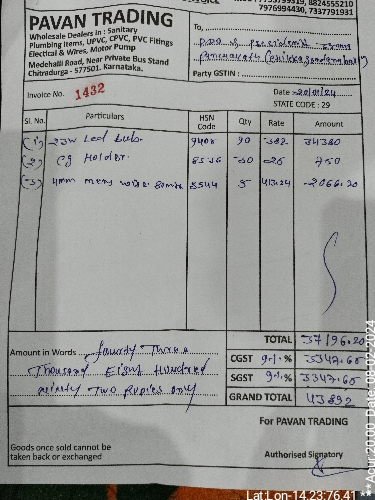 PAVAN TRADING
Wholesale Dealers in : Sanitary
Plumbing Items, UPVC, CPVC, PVC Fittings
Electical & Wires, Motor Pump
Medehalli Road, Near Private Bus Stand
Chitradurga - 577501. Karnataka.
7976994430, 7337791931
To,
Party GSTIN :
Invoice No. 1432
Date
STATE CODE : 29
Sl. No. Particulars HSN Code Qty Rate Amount
(1) 23W Led bulb. 90 34380
(2) Holder. 8536 30 25 750
(3) 4mm 8544 5 413.24 2066.20
TOTAL 37196.20
Amount in Words fourty Three
Thousand Eight Hundred
ninety Two Rupies only
CGST 9% 3347.65
SGST 9% 3347.65
GRAND TOTAL 43892
For PAVAN TRADING
Goods once sold cannot be
taken back or exchanged
Authorised Signatory
Lat:Lon-14.23:76.41